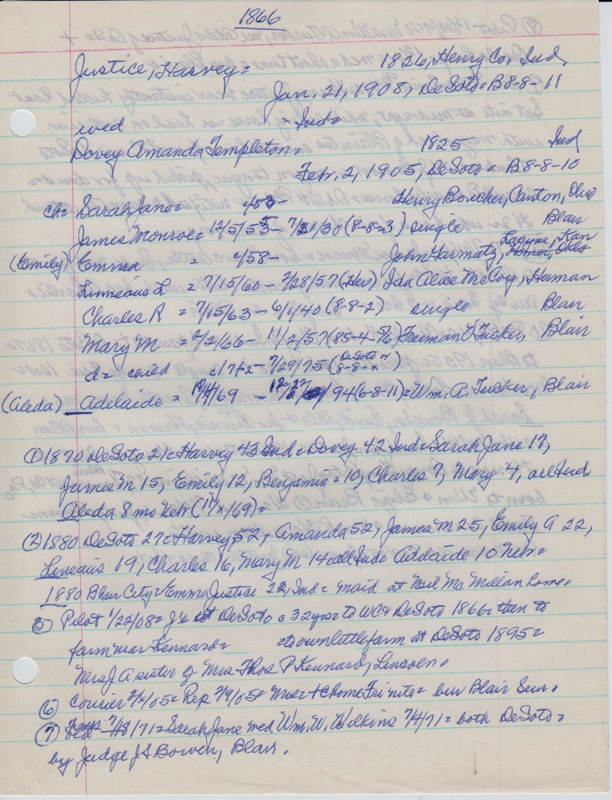 1866
Justice, Harvey = 1826, Henry Co, Ind
Jan. 21, 1908, DeSoto = B8-8-11
wed = Ind =
Dovey Amanda Templeton = 1825 Ind
Febr. 2, 1905, DeSoto = B8-8-10
ch = Sarah Jane = c/53- Henry Boucher, Canton, Ohio
James Monroe = 12/5/55 - 7/21/30 (8-8-3) single Blair
(Emily) Emma c/58- John Harmatz, Kan
Linneaus L = 7/15/60 - 2/28/57 (Her) Ida Alice McCoy, Herman
Charles R = 7/15/63 - 6/1/40 (8-8-2) single Blair
Mary M = 2/2/66 - 11/2/57 (85-4 Freeman L Tucker, Blair
d = Blair c/7+2 - 7/29/75 (DeSoto 8-8-x)
(Aleda) Adelaide = /69 - /94 (6-8-11) = Wm. A. Tucker, Blair
(1) 1870 DeSoto 21 = Harvey 43 Ind = Dovey 42 Ind = Sarah Jane 17,
James M 15, Emily 12, Benjamin = 10, Charles 7, Mary 4, all Ind
Aleda 8 mo Nebr (11/x/69) =
(2) 1880 DeSoto 27 = Harvey 52, Amanda 52, James M 25, Emily A 22,
Leneaus 19, Charles 16, Mary M 14 all Ind = Addeaide 10 Nebr =
1880 Blair City = Emma Justice 22, Ind = maid at Neil McMillan home.
5) Pilot 1/22/08 = J's at DeSoto = 32 yrs = to WC & DeSoto 1866 = then to
farm near Kennard = to own little farm at DeSoto 1895 =
Mrs J A sister of Mrs Thos P Kennard, Lincoln.
(6) Courier 2/4/05 = Rep 2/9/05 = Mrs J + home Fri nite = bur Blair Sun.
(7) 7/13/71 = Sarah Jane wed Wm. W. Wilkins 7/4/71 = both DeSoto =
by Judge J S Bowen, Blair.